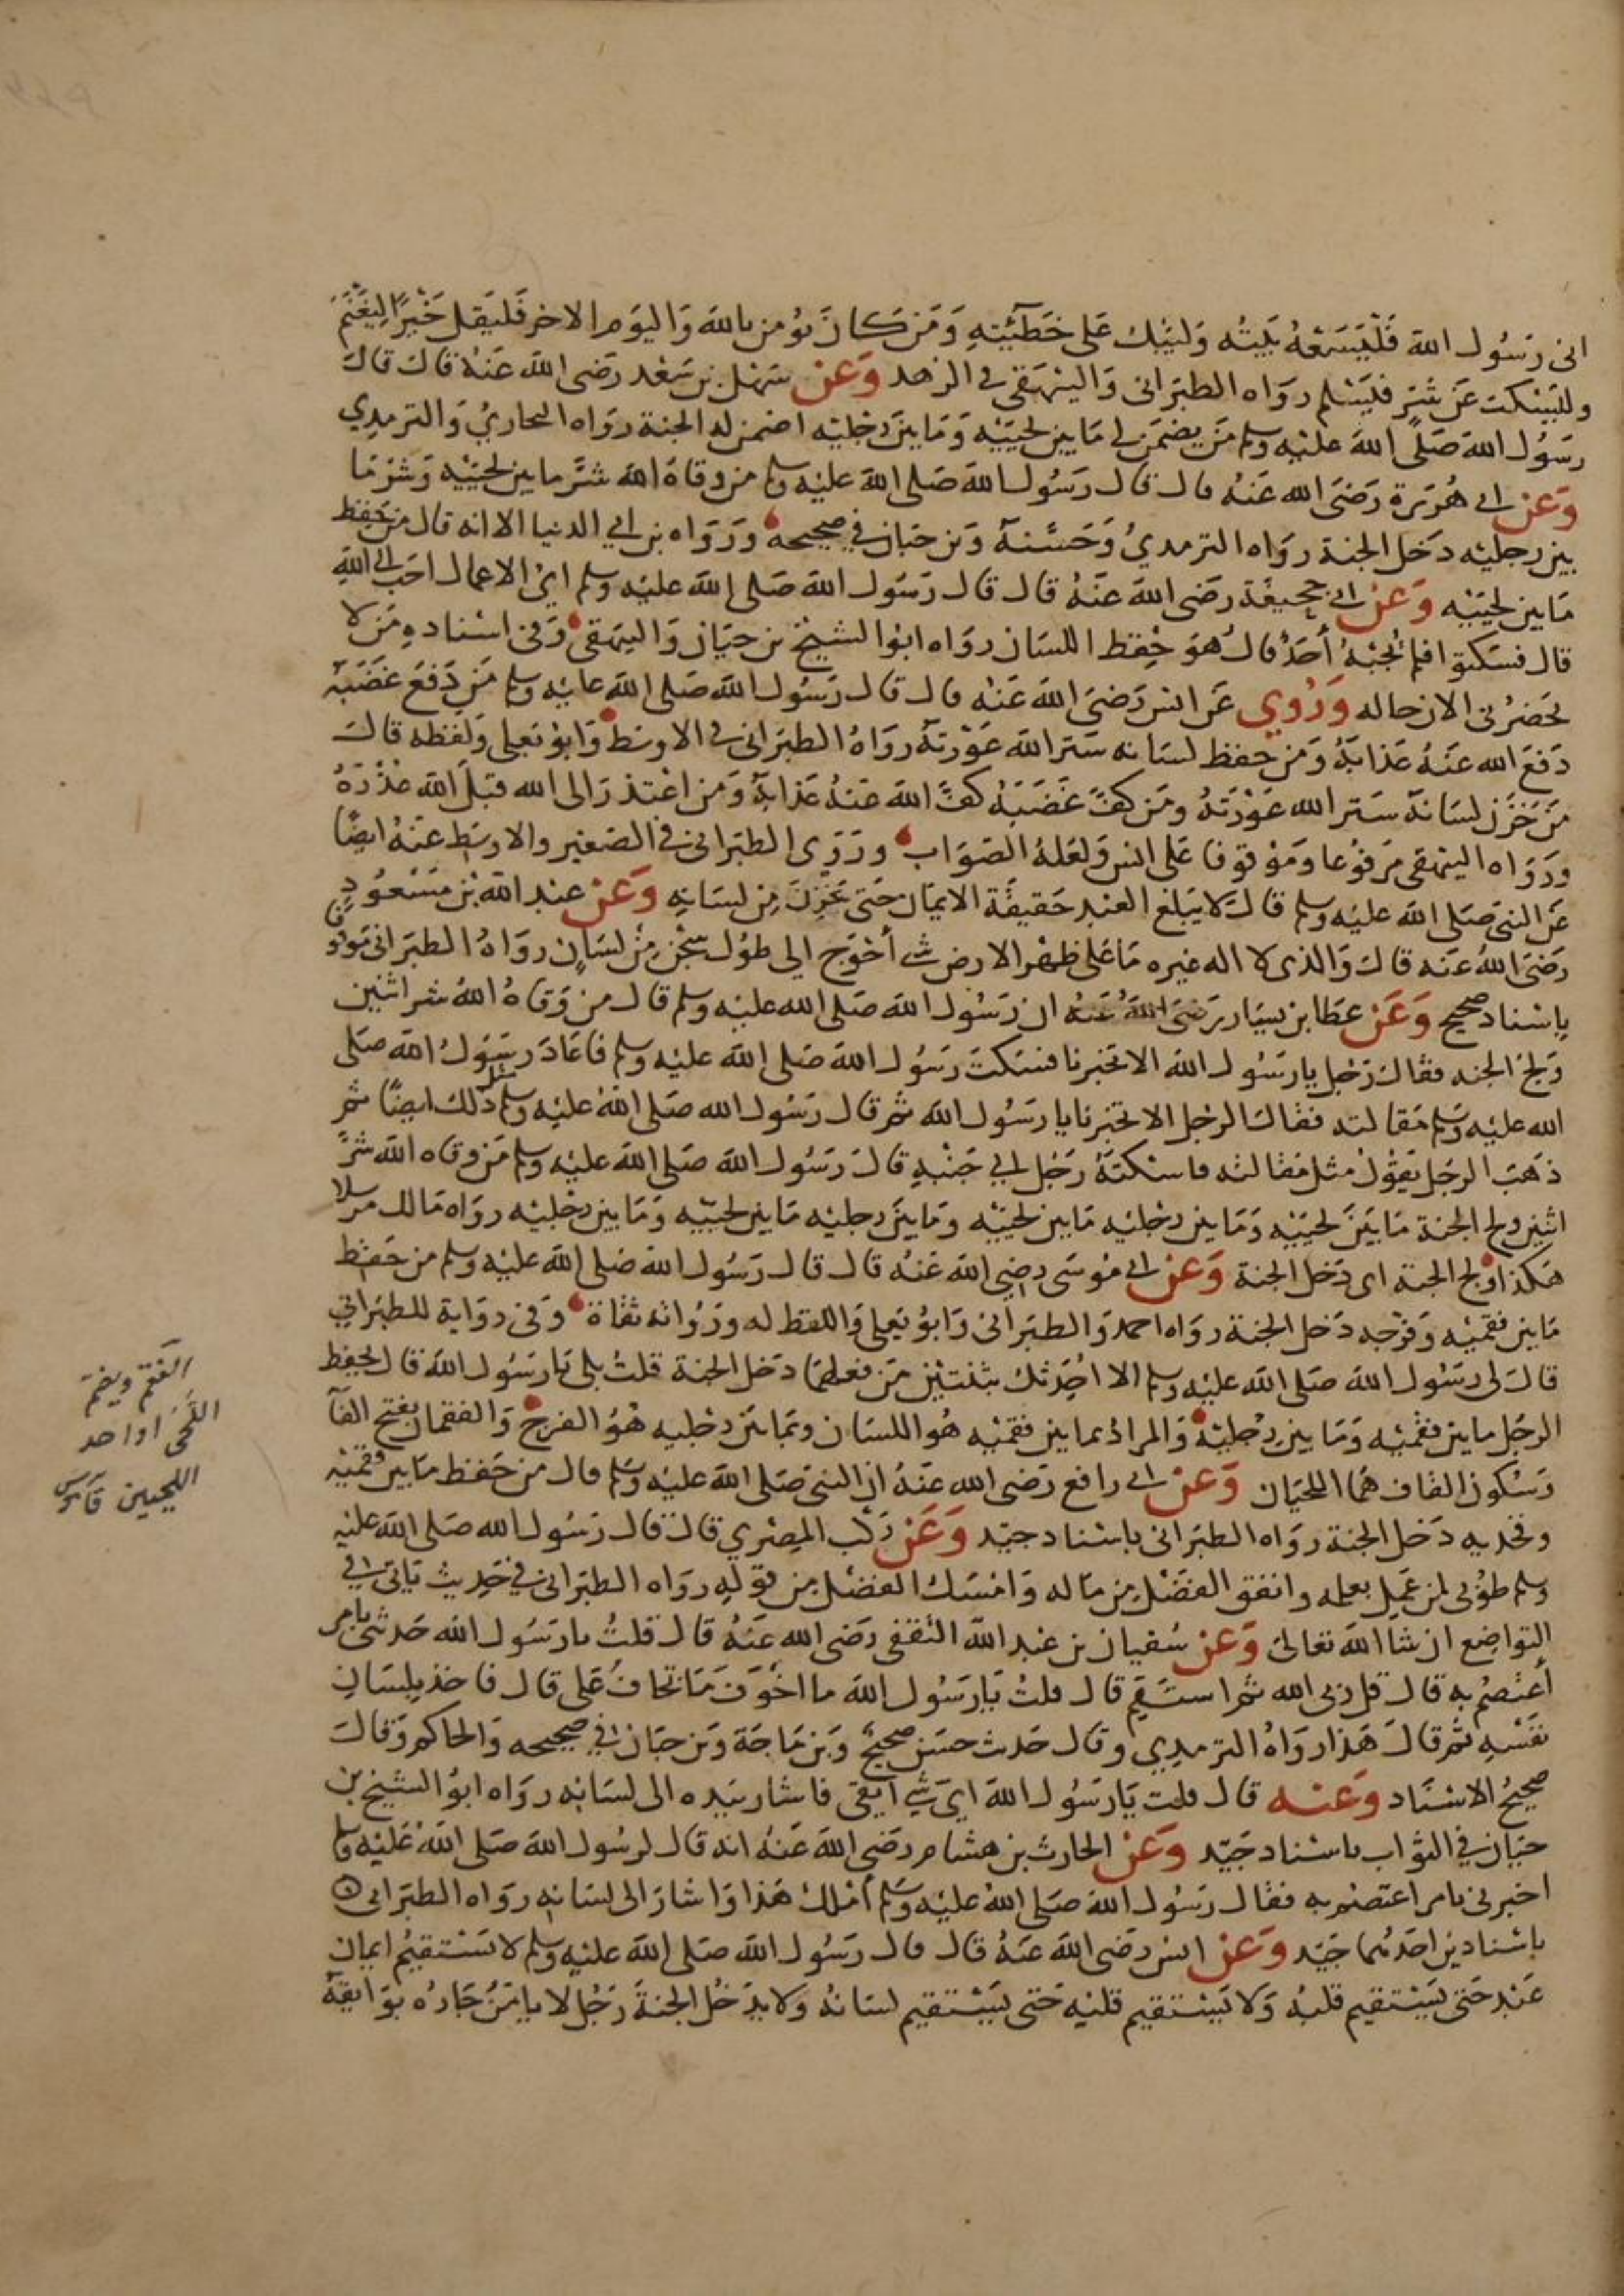 اني رسول الله فليسعه بيته وليبك على خطيئته ومن كان يؤمن بالله واليوم الاخر فليقل خيرا ليغنم
وليسكت عن شر فليسلم رواه الطبراني والبيهقي في الزهد وعن سهل بن سعد رضي الله عنه قال قال
رسول الله صلى الله عليه وسلم من يضمن لي ما بين لحييه وما بين رجليه اضمن له الجنة رواه البخاري والترمذي
وعن ابي هريرة رضي الله عنه قال قال رسول الله صلى الله عليه وسلم من وقاه الله شر ما بين لحييه وشر ما
بين رجليه دخل الجنة رواه الترمذي وحسنه وبن حبان في صحيحه ورواه بن ابي الدنيا الا انه قال من حفظ
ما بين لحييه وعن ابي جحيفة رضي الله عنه قال قال رسول الله صلى الله عليه وسلم اي الاعمال احب الى الله
قال فسكتوا فلم يجبه أحد قال هو حفظ اللسان رواه ابوا لشيخ بن حيان والبيهقي وفي اسناده من لا
يحضرني الان حاله وروي عن انس رضي الله عنه قال قال رسول الله صلى الله عليه وسلم من دفع غضبه
دفع الله عنه عذابه ومن حفظ لسانه ستر الله عورته رواه الطبراني في الاوسط وابو يعلى ولفظه قال
من خزن لسانه ستر الله عورته ومن كف غضبه كف الله عنه عذابه ومن اعتذر الى الله قبل الله عذره
ورواه البيهقي مرفوعا وموقوفا على انس ولعله الصواب وروى الطبراني في الصغير والاوسط عنه ايضا
عن النبي صلى الله عليه وسلم قال لا يبلغ العبد حقيقة الايمان حتى يخزن من لسانه وعن عبد الله بن مسعود
رضي الله عنه قال والذي لا اله غيره ما على ظهر الارض شي أحوج الى طول سجن من لسان رواه الطبراني موقوفا
باسناد صحيح وعن عطا بن يسار رضي الله عنه ان رسول الله صلى الله عليه وسلم قال من وقاه الله شر اثنين
ولج الجنه فقال رجل يا رسول الله الا تخبرنا فسكت رسول الله صلى الله عليه وسلم فاعاد رسول الله صلى
الله عليه وسلم مقالته فقال الرجل الا تخبرنا يا رسول الله ثم قال رسول الله صلى الله عليه وسلم مثل ذلك ايضا ثم
ذهب الرجل يقول مثل مقالته فاسكته رجل الى جنبه قال رسول الله صلى الله عليه وسلم من وقاه الله شر
اثنين ولج الجنة ما بين لحييه وما بين رجليه ما بين لحييه وما بين رجليه ما بين لحييه وما بين رجليه رواه مالك مرسلا
هكذا ولج الجنة اي دخل الجنة وعن ابي موسى رضي الله عنه قال قال رسول الله صلى الله عليه وسلم من حفظ
ما بين فقميه وفرجه دخل الجنة رواه احمد والطبراني وابو يعلى واللفظ له ورواته ثقاة وفي رواية للطبراني
قال لي رسول الله صلى الله عليه وسلم الا احدثك بثنتين من فعلهما دخل الجنة قلت بلى يا رسول الله قال يحفظ
الرجل ما بين فقميه وما بين رجليه والمراد بما بين فقميه هو اللسان وبما بين رجليه هو الفرج والفقمان بفتح الفآ
وسكون القاف هما اللحيان وعن ابي رافع رضي الله عنه ان النبي صلى الله عليه وسلم قال من حفظ ما بين فقميه
وفخذيه دخل الجنة رواه الطبراني باسناد جيد وعن ركب المصري قال قال رسول الله صلى الله عليه
وسلم طوبى لمن عمل بعلمه وانفق الفضل من ماله وامسك الفضل من قوله رواه الطبراني في حديث يأتي في
التواضع ان شا الله تعالى وعن سفيان بن عبد الله الثقفي رضي الله عنه قال قلت يا رسول الله حدثني بامر
أعتصم به قال قل ربي الله ثم استقم قال قلت يا رسول الله ما اخوف ما تخاف على قال فاخذ بلسان
نفسه ثم قال هذا رواه الترمذي وقال حدث حسن صحيح وبن ماجة وبن حبان في صحيحه والحاكم وقال
صحيح الاسناد وعنه قال قلت يا رسول الله اي شي اتقي فاشار بيده الى لسانه رواه ابو الشيخ بن
حيان في الثواب باسناد جيد وعن الحارث بن هشام رضي الله عنه انه قال لرسول الله صلى الله عليه وسلم
اخبرني بامر اعتصم به فقال رسول الله صلى الله عليه وسلم أملك هذا واشار الى لسانه رواه الطبراني
باسنادين احدهما جيد وعن انس رضي الله عنه قال قال رسول الله صلى الله عليه وسلم لا يستقيم ايمان
عبد حتى يستقيم قلبه ولا يستقيم قلبه حتى يستقيم لسانه ولا يدخل الجنة رجل لا يامن جاره بوايقه
الفقم ويضم
اللحى او احد
اللحيين قاموس